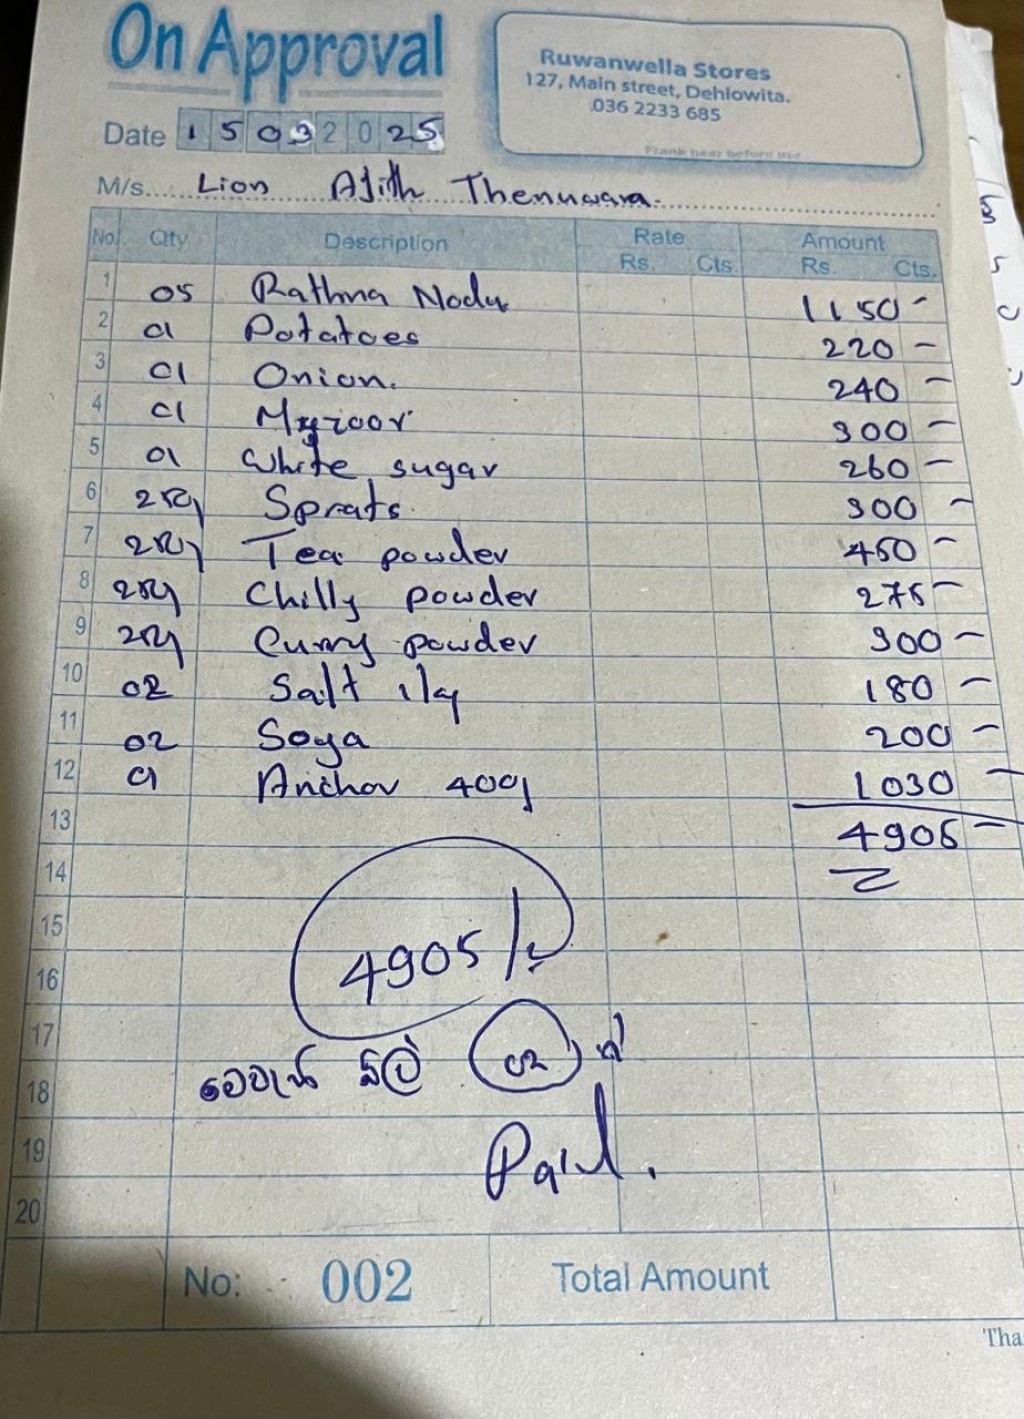 On Approval
Ruwanwella Stores
127, Main street, Dehlowita.
036 2233 685
Frank hear before use
Date 15032025
M/s..... Lion Ajith Thenuwara.
No. Qty Description Rate Rs. Cts. Amount Rs. Cts.
1 05 Rathna Nadu 1150 -
2 01 Potatoes 220 -
3 01 Onion. 240 -
4 01 300 -
5 01 White sugar 260 -
6 Sprats. 300 -
7 Tea powder 450 -
8 Chilly powder 275 -
9 Curry powder 300 -
10 02 Salt 180 -
11 02 Soya 200 -
12 01 Anchor 400g 1030 -
13 4905 -
14
15
4905/=
16
17
මෙවැනි බිල් 02 ක්
18
19
Paid.
20
No: 002 Total Amount
Tha